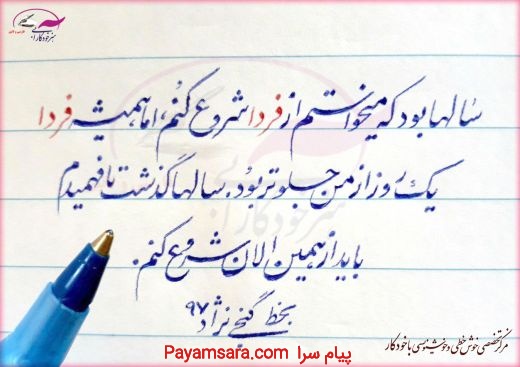 هنر خودکار آبی
سالها بود که میخواستم از فردا شروع کنم، اما همیشه فردا
یک روز از من جلوتر بود. سالها گذشت تا فهمیدم
باید از همین الان شروع کنم.
بخط گنجی نژاد ۹۷
مرکز تخصصی خوش خطی و خوشنویسی با خودکار
پیام سرا Payamsara.com